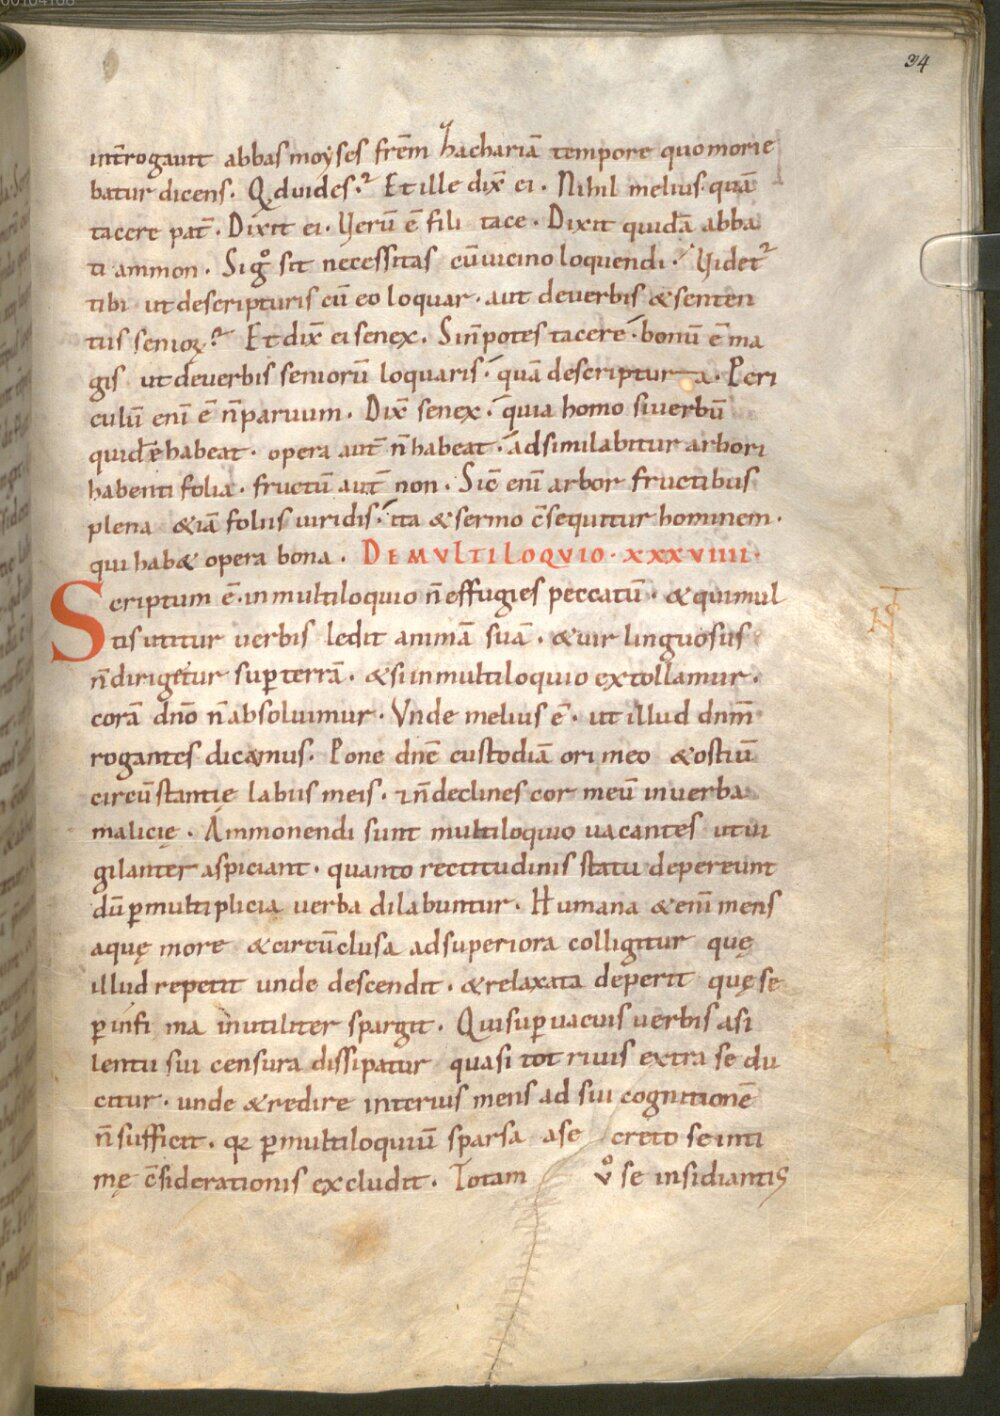 34
intˉrogauit abbas moyses frēm zachariā tempore quo morie
batur dicens. Qd uides? Et ille dix̄ ei. Nihil melius quā
tacere pat̄. Dixit ei. Uerū ē fili tace. Dixit quidā abba
ti ammon. Si gͦ sit necessitas cū uicino loquendi. Uidet̉
tibi ut de scripturis cū eo loquar. aut de uerbis & senten
tiis senioꝝ? Et dix̄ ei senex. Si n̄ potes tacere. bonū ē ma
gis ut de uerbis seniorū loquaris. quā de scriptura. Peri
culū eni ē n̄ paruum. Dix̄ senex. quia homo si uerbū
quidē habeat. opera aut̄ n̄ habeat. adsimilabitur arbori
habenti folia. fructū aut̄ non. Sic̄ eni arbor fructibus
plena &iā foliis uiridis. ita & sermo c̄sequitur hominem.
qui hab& opera bona. DE MVLTILOQVIO. XXXVIIII.
Scriptum ē. in multiloquio n̄ effugies peccatū. & qui mul
tis utitur uerbis ledit animā suā. & uir linguosus
n̄ dirigetur suꝑ terrā. & si in multiloquio extollamur.
corā dn̄o n̄ absoluimur. Vnde melius ē. ut illud dn̄m
rogantes dicamus. Pone dn̄e custodiā ori meo & ostiū
circūstantię labiis meis. & n̄ declines cor meū in uerba
malicię. Ammonendi sunt multiloquio uacantes ut ui
gilanter aspiciant. quanto rectitudinis statu depereunt
dū ꝑ multiplicia uerba dilabuntur. Humana &eni mens
aquę more & circūclusa ad superiora colligitur quę
illud repetit unde descendit. & relaxata deperit quę se
ꝑ infi ma inutiliter spargit. Qui suꝑuacuis uerbis a si
lentii sui censura dissipatur quasi tot riuis extra se du
citur. unde & redire interius mens ad sui cognitionē
n̄ sufficit. qꝛ ꝑ multiloquiū sparsa a se creto se inti
mę c̄siderationis excludit. Totam uͦ se insidiantis